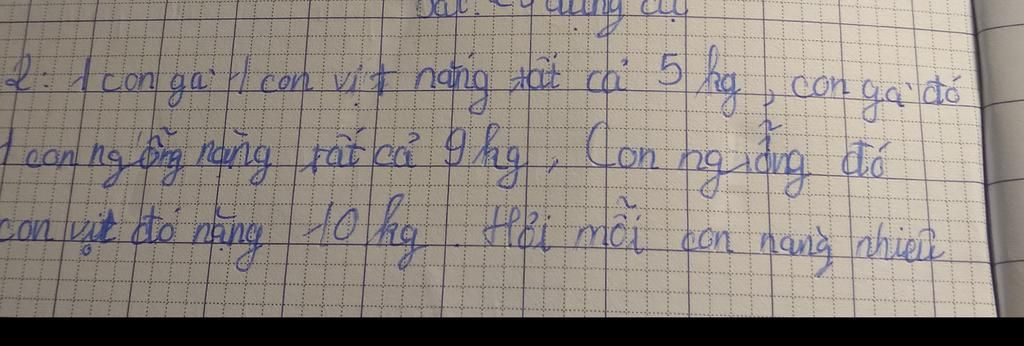 2: 1 con gà 1 con vịt nặng tất cả 5 kg, con gà đó
1 con ngỗng nặng tất cả 9 kg, Con ngỗng đó
con vịt đó nặng 10 kg. Hỏi mỗi con nặng nhiêu